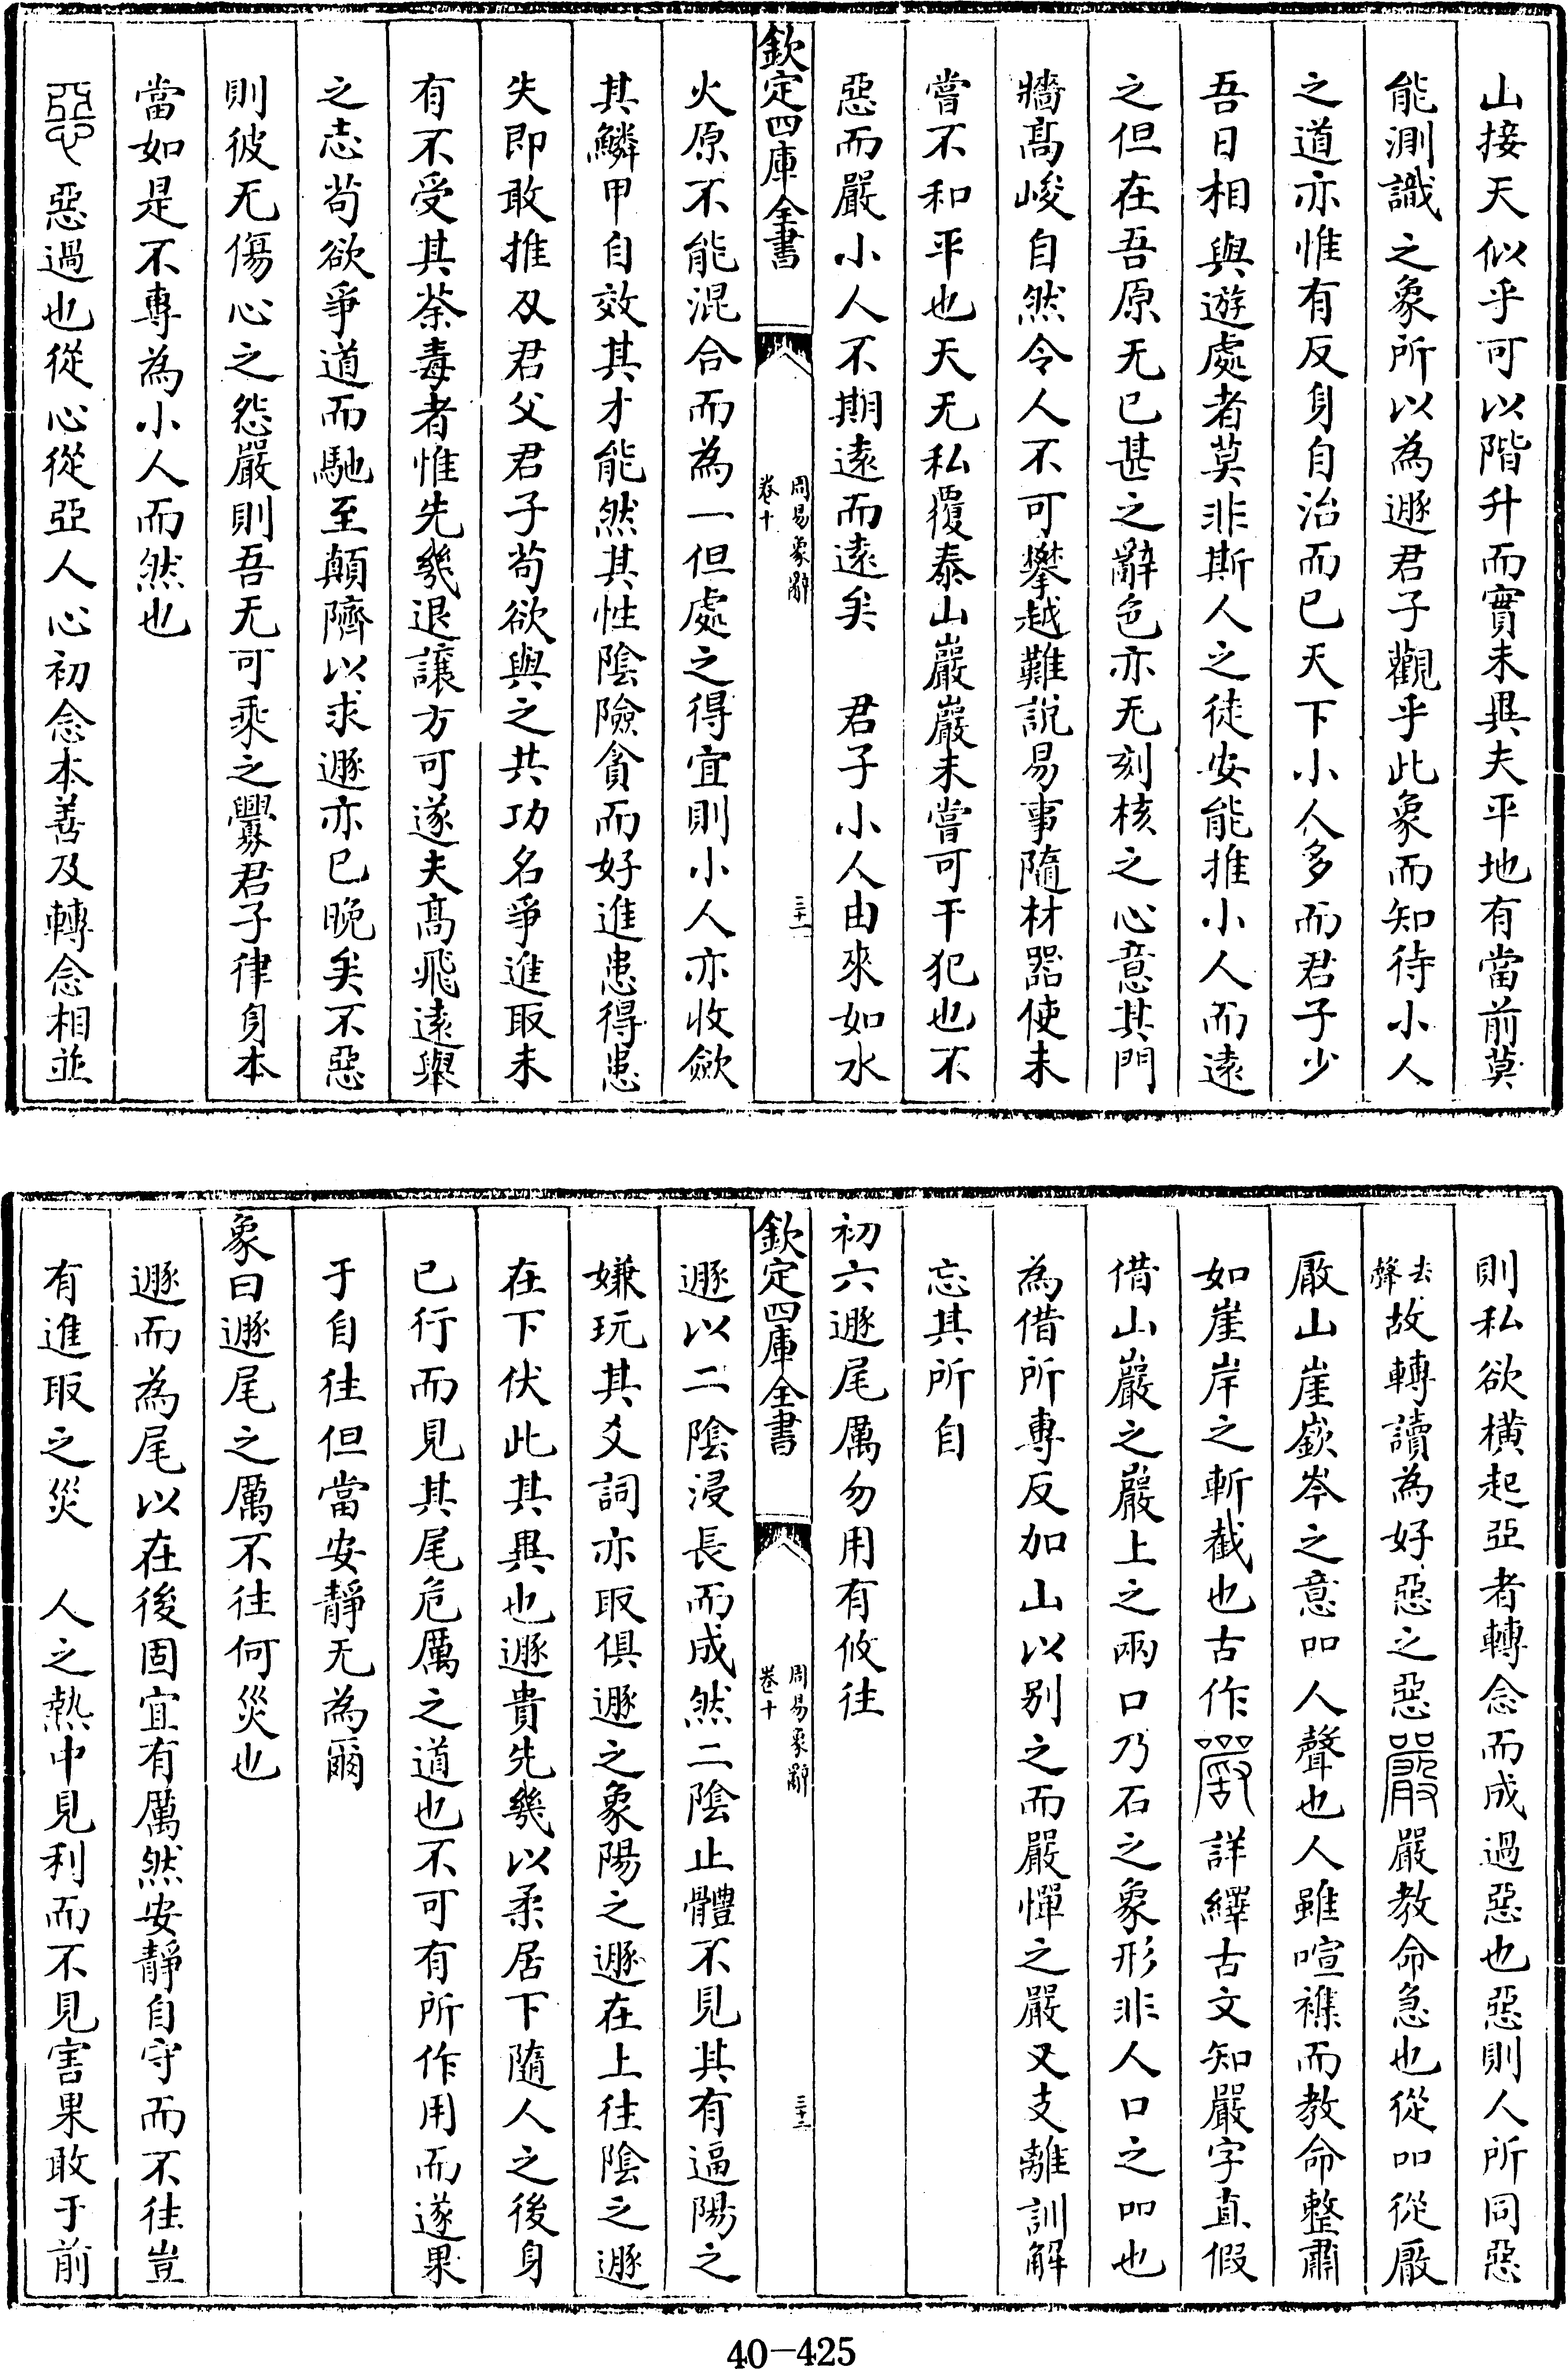 山接天似乎可以階升而實未異夫平地有當前莫
能測識之象所以為遯君子觀乎此象而知待小人
之道亦惟有反身自治而已天下小人多而君子少
吾日相與遊處者莫非斯人之徒安能推小人而遠
之但在吾原无已甚之辭色亦无刻核之心意其門
牆高峻自然令人不可攀越難說易事隨材器使未
嘗不和平也天无私覆泰山巖巖未嘗可干犯也不
惡而嚴小人不期遠而遠矣　君子小人由來如水
欽定四庫全書
周易象辭
卷十
三十一
火原不能混合而為一但處之得宜則小人亦收斂
其鱗甲自效其才能然其性陰險貪而好進患得患
失即敢推及君父君子苟欲與之共功名爭進取未
有不受其荼毒者惟先幾退讓方可遂夫高飛遠舉
之志苟欲爭道而馳至顛隮以求遯亦已晚矣不惡
則彼无傷心之怨嚴則吾无可乘之釁君子律身本
當如是不專為小人而然也
惡　惡過也從心從亞人心初念本善及轉念相並
則私欲橫起亞者轉念而成過惡也惡則人所同惡
去聲故轉讀為好惡之惡嚴嚴教命急也從吅從厰
厰山崖嶔岑之意吅人聲也人雖喧襍而教命整肅
如崖岸之斬截也古作𠪚詳繹古文知嚴字直假
借山巖之巖上之兩口乃石之象形非人口之吅也
為借所專反加山以别之而嚴憚之嚴又支離訓解
忘其所自
初六遯尾厲勿用有攸往
欽定四庫全書
周易象辭
卷十
三十二
遯以二陰浸長而成然二陰止體不見其有逼陽之
嫌玩其爻詞亦取俱遯之象陽之遯在上往陰之遯
在下伏此其異也遯貴先幾以柔居下隨人之後身
已行而見其尾危厲之道也不可有所作用而遂果
于自往但當安靜无為爾
象曰遯尾之厲不往何災也
遯而為尾以在後固宜有厲然安靜自守而不往豈
有進取之災　人之熱中見利而不見害果敢于前
40-425